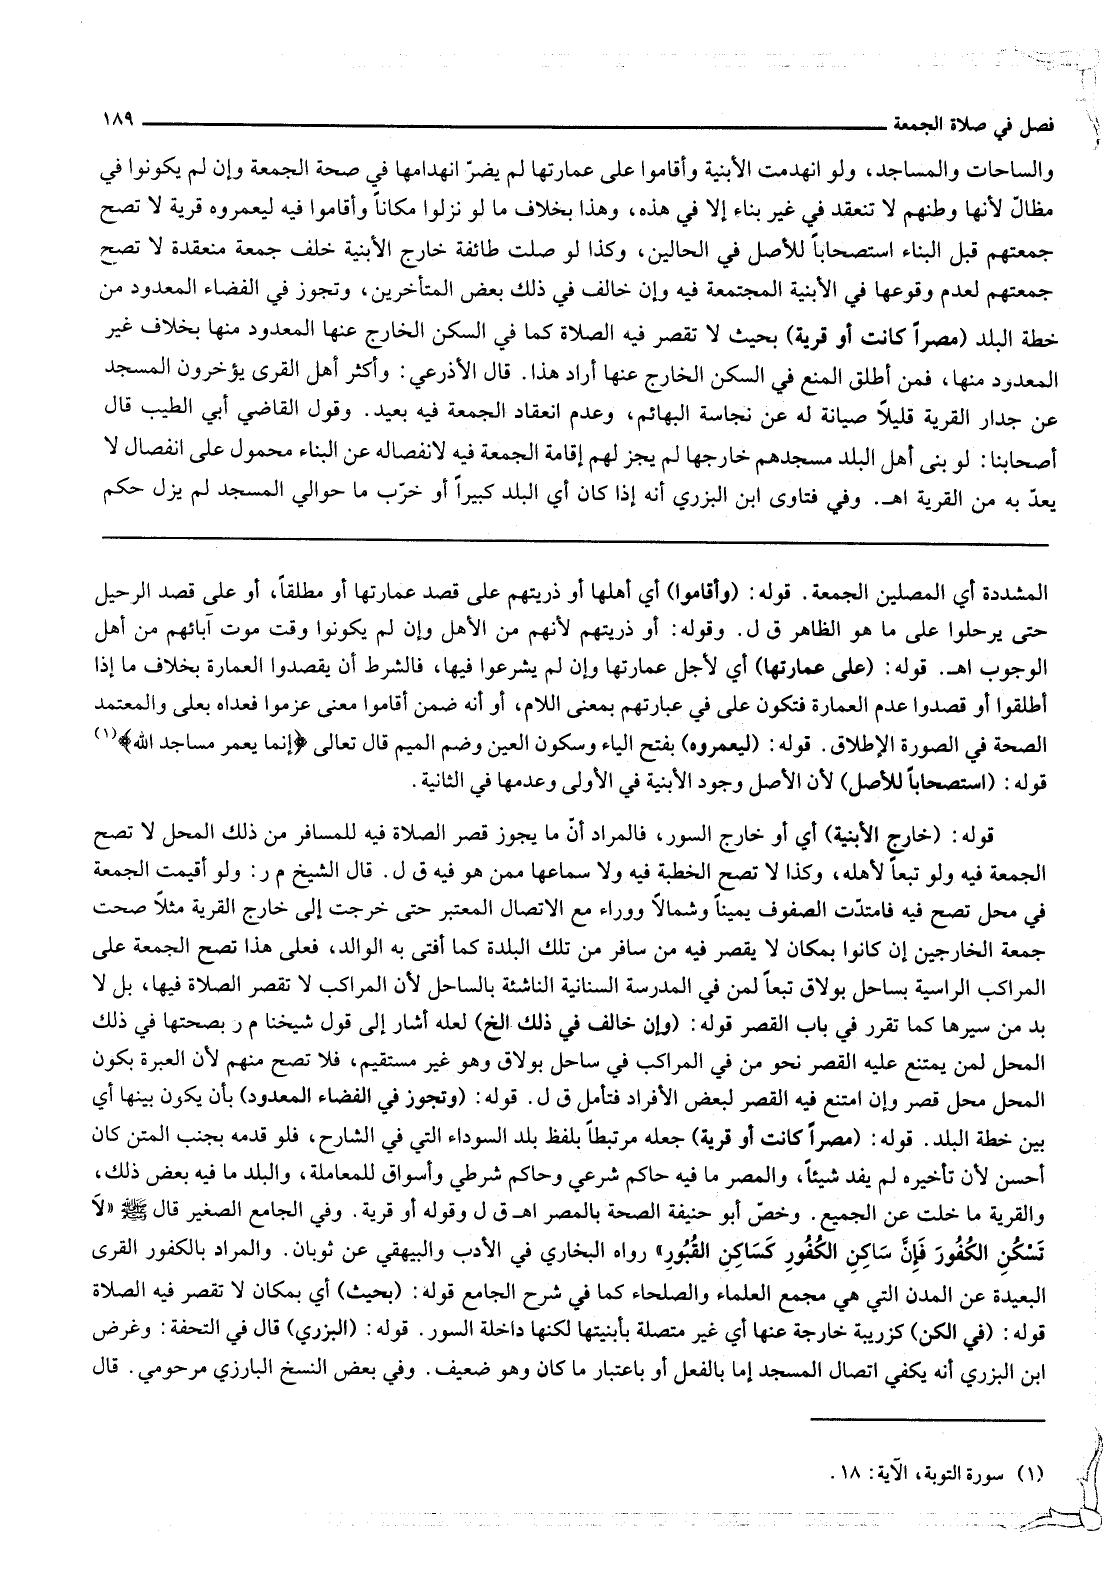 فصل في صلاة الجمعة ١٨٩
والساحات والمساجد، ولو انهدمت الأبنية وأقاموا على عمارتها لم يضرّ انهدامها في صحة الجمعة وإن لم يكونوا في
مظالّ لأنها وطنهم لا تنعقد في غير بناء إلا في هذه، وهذا بخلاف ما لو نزلوا مكاناً وأقاموا فيه ليعمروه قرية لا تصح
جمعتهم قبل البناء استصحاباً للأصل في الحالين، وكذا لو صلت طائفة خارج الأبنية خلف جمعة منعقدة لا تصح
جمعتهم لعدم وقوعها في الأبنية المجتمعة فيه وإن خالف في ذلك بعض المتأخرين، وتجوز في الفضاء المعدود من
خطة البلد (مصراً كانت أو قرية) بحيث لا تقصر فيه الصلاة كما في السكن الخارج عنها المعدود منها بخلاف غير
المعدود منها، فمن أطلق المنع في السكن الخارج عنها أراد هذا. قال الأذرعي: وأكثر أهل القرى يؤخرون المسجد
عن جدار القرية قليلاً صيانة له عن نجاسة البهائم، وعدم انعقاد الجمعة فيه بعيد. وقول القاضي أبي الطيب قال
أصحابنا: لو بنى أهل البلد مسجدهم خارجها لم يجز لهم إقامة الجمعة فيه لانفصاله عن البناء محمول على انفصال لا
يعدّ به من القرية اهـ. وفي فتاوى ابن البزري أنه إذا كان أي البلد كبيراً أو خرّب ما حوالي المسجد لم يزل حكم
المشددة أي المصلين الجمعة. قوله: (وأقاموا) أي أهلها أو ذريتهم على قصد عمارتها أو مطلقاً، أو على قصد الرحيل
حتى يرحلوا على ما هو الظاهر ق ل. وقوله: أو ذريتهم لأنهم من الأهل وإن لم يكونوا وقت موت آبائهم من أهل
الوجوب اهـ. قوله: (على عمارتها) أي لأجل عمارتها وإن لم يشرعوا فيها، فالشرط أن يقصدوا العمارة بخلاف ما إذا
أطلقوا أو قصدوا عدم العمارة فتكون على في عبارتهم بمعنى اللام، أو أنه ضمن أقاموا معنى عزموا فعداه بعلى والمعتمد
الصحة في الصورة الإطلاق. قوله: (ليعمروه) بفتح الياء وسكون العين وضم الميم قال تعالى ﴿إنما يعمر مساجد الله﴾(١)
قوله: (استصحاباً للأصل) لأن الأصل وجود الأبنية في الأولى وعدمها في الثانية.
قوله: (خارج الأبنية) أي أو خارج السور، فالمراد أنّ ما يجوز قصر الصلاة فيه للمسافر من ذلك المحل لا تصح
الجمعة فيه ولو تبعاً لأهله، وكذا لا تصح الخطبة فيه ولا سماعها ممن هو فيه ق ل. قال الشيخ م ر: ولو أقيمت الجمعة
في محل تصح فيه فامتدّت الصفوف يميناً وشمالاً ووراء مع الاتصال المعتبر حتى خرجت إلى خارج القرية مثلاً صحت
جمعة الخارجين إن كانوا بمكان لا يقصر فيه من سافر من تلك البلدة كما أفتى به الوالد، فعلى هذا تصح الجمعة على
المراكب الراسية بساحل بولاق تبعاً لمن في المدرسة السنانية الناشئة بالساحل لأن المراكب لا تقصر الصلاة فيها، بل لا
بد من سيرها كما تقرر في باب القصر قوله: (وإن خالف في ذلك الخ) لعله أشار إلى قول شيخنا م ر بصحتها في ذلك
المحل لمن يمتنع عليه القصر نحو من في المراكب في ساحل بولاق وهو غير مستقيم، فلا تصح منهم لأن العبرة بكون
المحل محل قصر وإن امتنع فيه القصر لبعض الأفراد فتأمل ق ل. قوله: (وتجوز في الفضاء المعدود) بأن يكون بينها أي
بين خطة البلد. قوله: (مصراً كانت أو قرية) جعله مرتبطاً بلفظ بلد السوداء التي في الشارح، فلو قدمه بجنب المتن كان
أحسن لأن تأخيره لم يفد شيئاً، والمصر ما فيه حاكم شرعي وحاكم شرطي وأسواق للمعاملة، والبلد ما فيه بعض ذلك،
والقرية ما خلت عن الجميع. وخصّ أبو حنيفة الصحة بالمصر اهـ ق ل وقوله أو قرية. وفي الجامع الصغير قال ﷺ «لاَ
تَسْكُنِ الكُفُورَ فَإِنَّ سَاكِنِ الكُفُورِ كَسَاكِنِ القُبُورِ» رواه البخاري في الأدب والبيهقي عن ثوبان. والمراد بالكفور القرى
البعيدة عن المدن التي هي مجمع العلماء والصلحاء كما في شرح الجامع قوله: (بحيث) أي بمكان لا تقصر فيه الصلاة
قوله: (في الكن) كزريبة خارجة عنها أي غير متصلة بأبنيتها لكنها داخلة السور. قوله: (البزري) قال في التحفة: وغرض
ابن البزري أنه يكفي اتصال المسجد إما بالفعل أو باعتبار ما كان وهو ضعيف. وفي بعض النسخ البارزي مرحومي. قال
(١) سورة التوبة، الآية: ١٨.